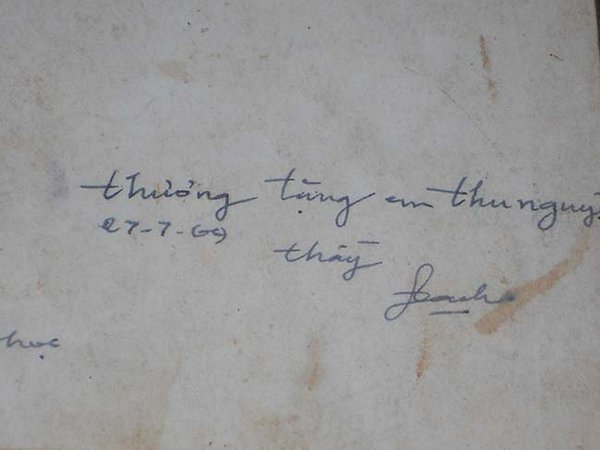 thương tặng em thu nguy
27-7-69
thầy
học